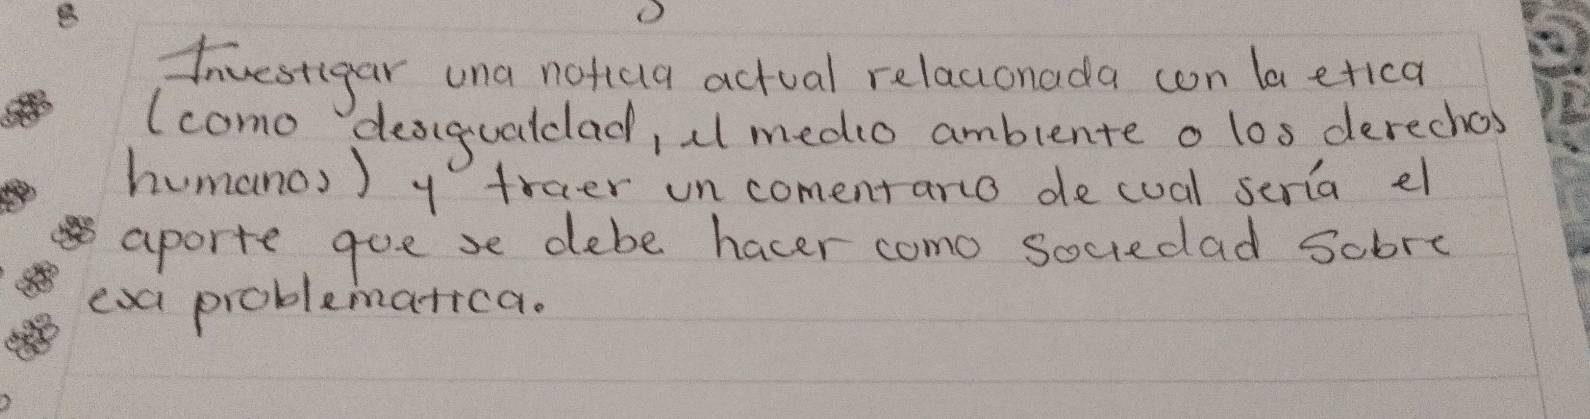 Investigar una noticia actual relacionada con la etica
(como desigualdad, el medio ambiente o los derechos
humanos) y traer un comentario de cual sería el
aporte que se debe hacer como sociedad sobre
esa problematica.